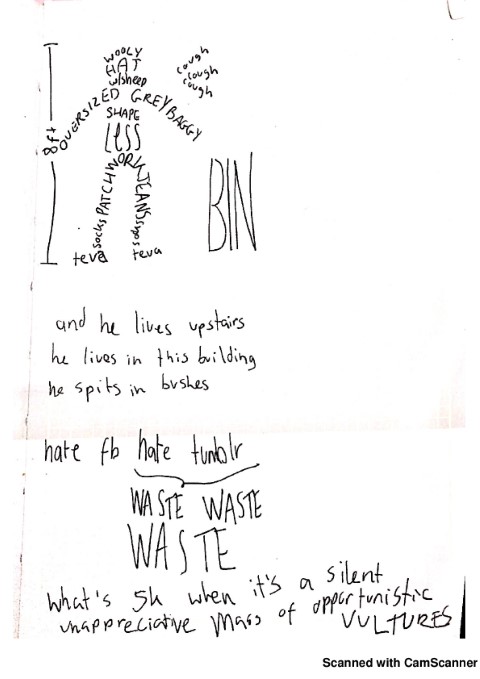 WOOLY
HAT
w/sheep
cough
cough
cough
OVERSIZED GREY BAGGY
SHAPE
LESS
8ft
PATCHWORK JEANS
socks
socks
teva
teva
BIN
and he lives upstairs
he lives in this building
he spits in bushes
hate fb hate tumblr
WASTE WASTE
WASTE
what's 5k when it's a silent
unappreciative mass of opportunistic
VULTURES
Scanned with CamScanner